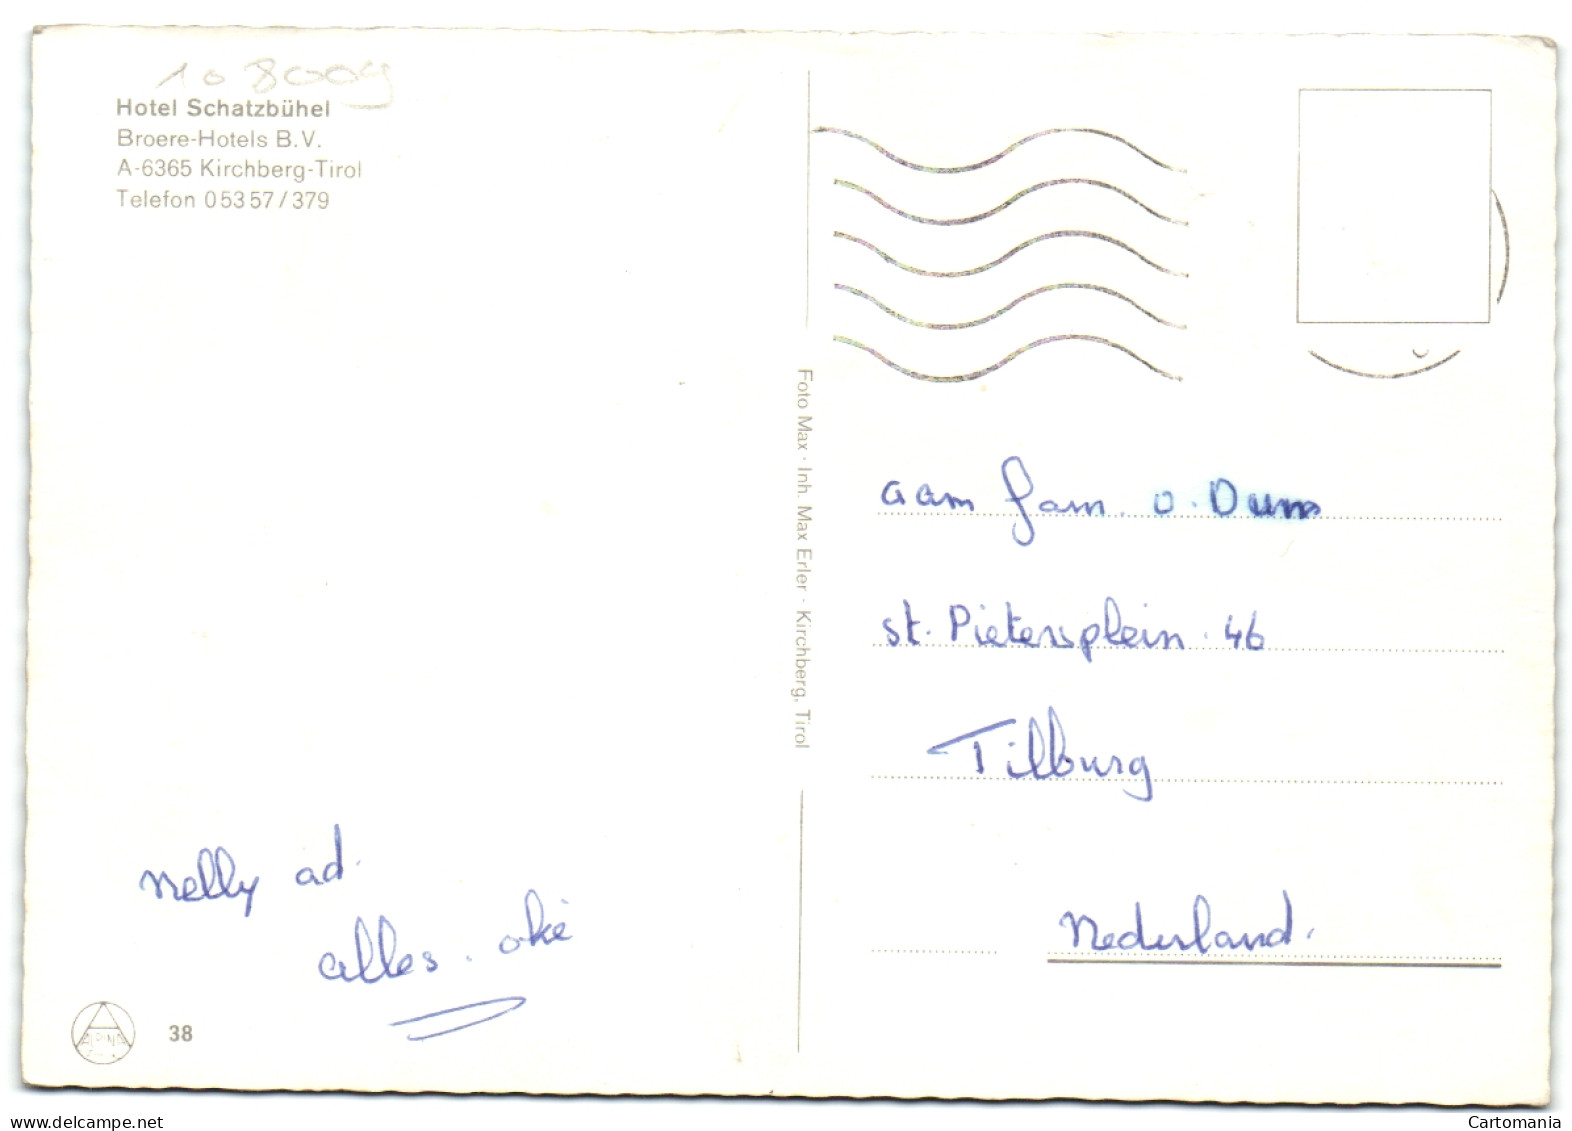 108009
Hotel Schatzbühel
Broere-Hotels B.V.
A-6365 Kirchberg-Tirol
Telefon 05357/379
Foto Max · Inh. Max Erler · Kirchberg, Tirol
aan fam. v. Duns
st. Pietersplein. 46
Tilburg
Nederland.
Nelly ad.
alles. oké
ALPINA
38
www.delcampe.net
Cartomania